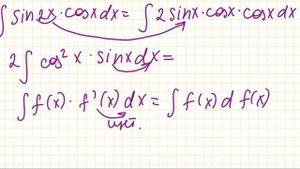 ∫ sin2x · cosx dx = ∫ 2 sinx · cosx · cosx dx
2 ∫ cos²x · sinx dx =
∫ f(x) · f'(x) dx = ∫ f(x) d f(x)